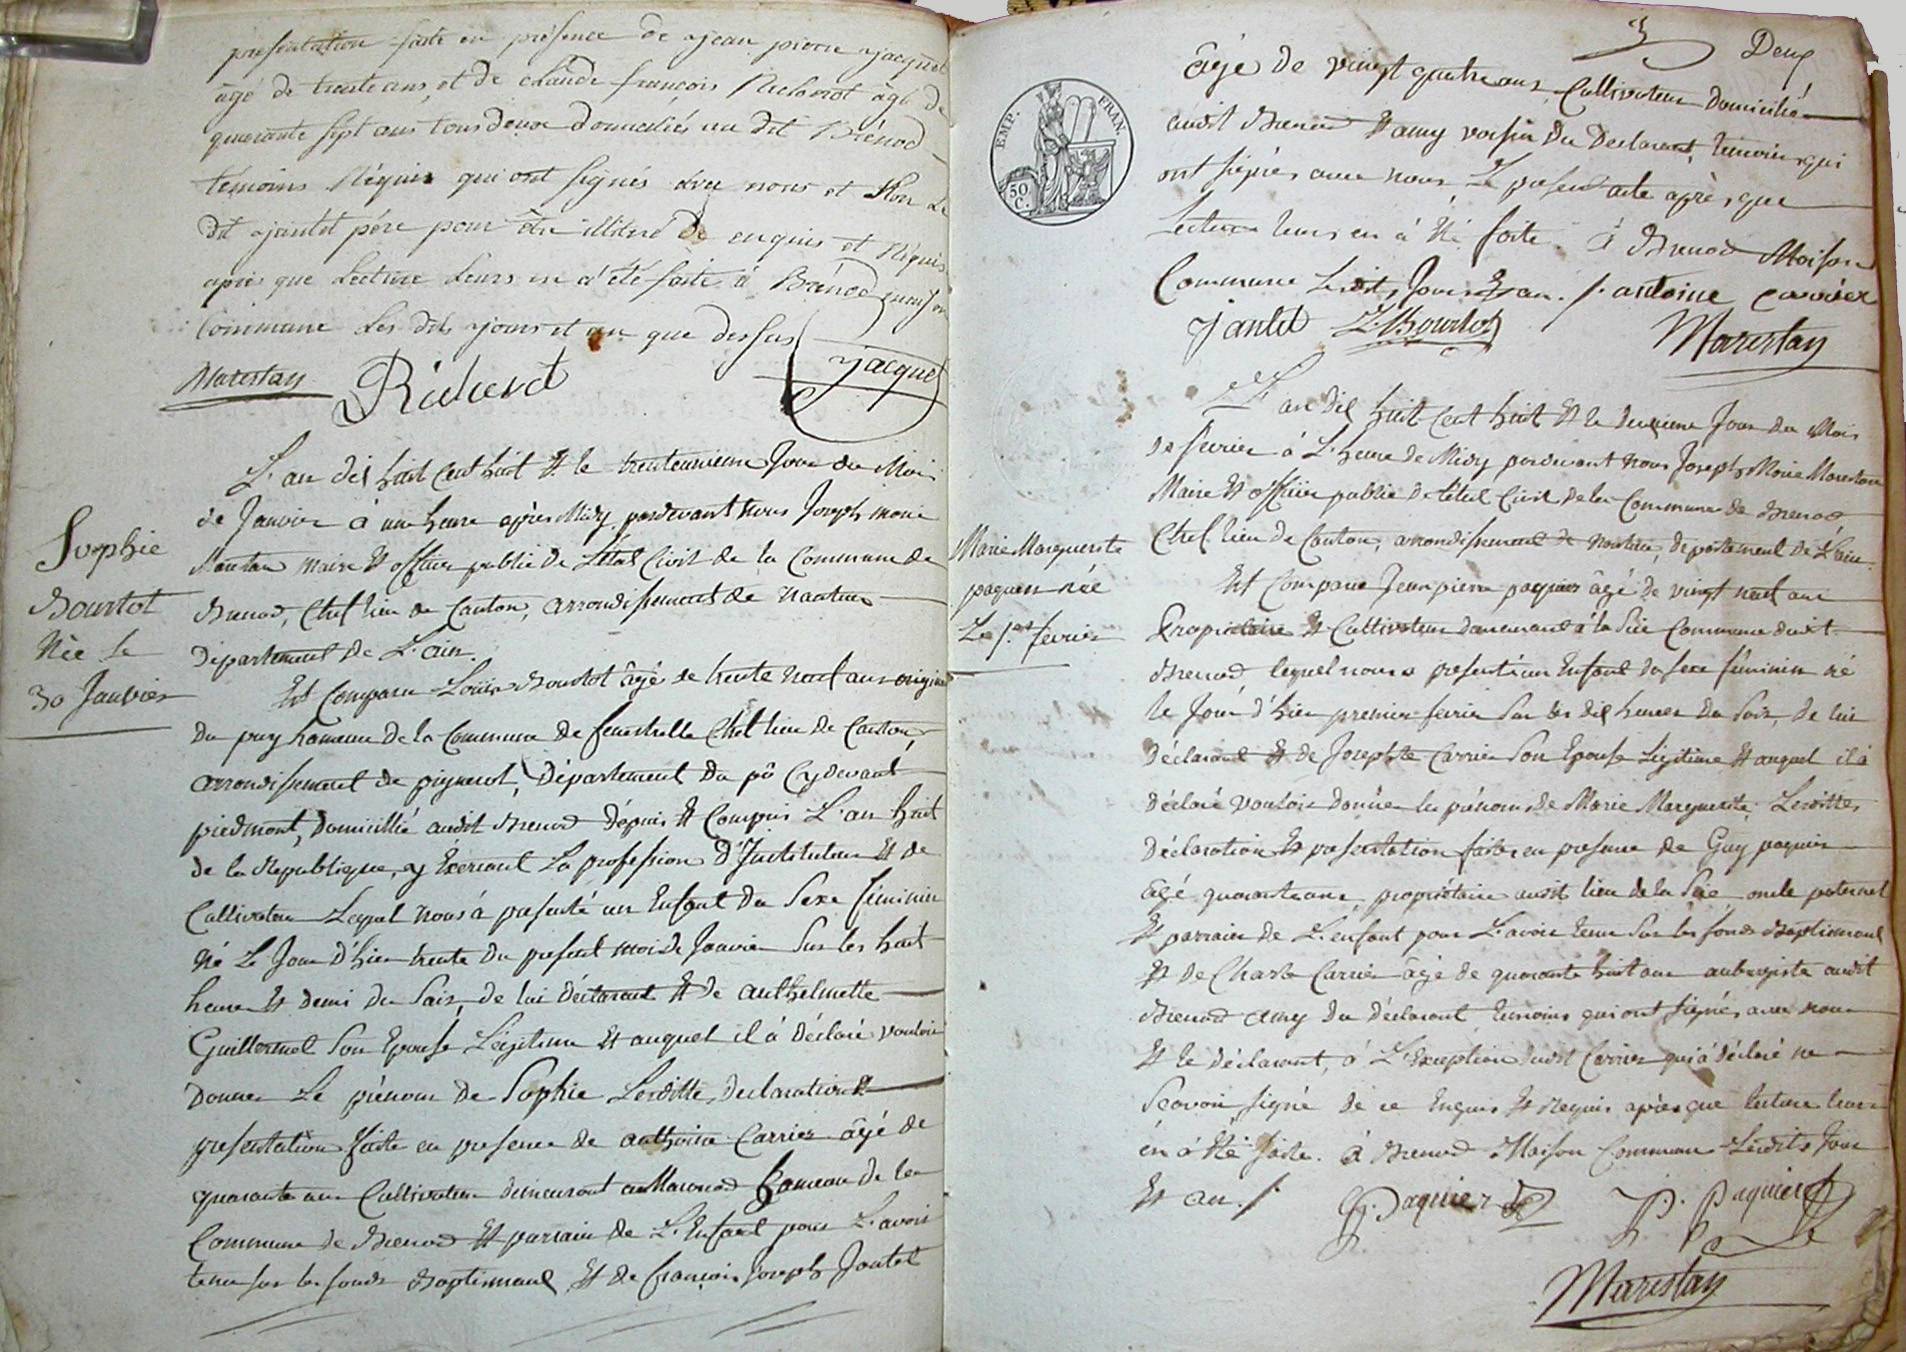 presentation faite en présence de jean pierre jacquet
âgé de trente ans, et de claude françois Richerot âgé de
quarante sept ans tous deux domiciliés au dit Brénod
témoins Réquis qui ont signés avec nous et Non Le
dit jantet pére pour être illitéré de enquis et Réquis
apres que Lecture Leurs en a été faite à Brénod maison
Commune Les dits jours et an que dessus
Marestan Richerot jacquet
Sophie
Bourtot
Née le
30 Janvier
L'an dix huit cent huit & le trente unieme Jour du Mois
de Janvier à une heure après Midy, pardevant nous Joseph marie
Marestan maire & officier public de L'état Civil de la Commune de
Brenod, Chef lieu de Canton, arrondissement de Nantua
Département de L'ain.
Est Comparu Louis Bourtot âgé de trente neuf ans origine
du puy hameau de la Commune de fenestrelle Chef lieu de Canton,
arrondissement de pignerol, Département du pô Cy devant
piedmont, Domicillié audit Brenod dépuis & Compris L'an huit
de la République, y Exerceant la profession D'Instituteur & de
Cultivateur Lequel Nous à presenté un Enfant du Sexe féminin
Né Le Jour D'hier trente du present mois de Janvier Sur les huit
heures & demi du Soir, de lui Déclarant & de anthelmette
Guillermet Son Epouse Legitime & auquel il à Déclaré vouloir
Donner Le prénom de Sophie Lesditte, Declaration &
presentation faite en presence de anthoine Carrier âgé de
quarante ans Cultivateur demeurant au Macconod hameau de la
Commune de Brenod & parrain de L'Enfant pour L'avoir
tenu sur les fonds Baptismaul & de françois Joseph Jantet
Deux
âgé de vingt quatre ans Cultivateur Domicilié
audit Brenod & amy voisin du Declarant, temoins qui
ont signés avec nous Le present acte après que
Lecture leurs en à été faite. à Brenod Maison
Commune Lesdits Jours & an. /. antoine carrier
Jantet L. Bourtot
Marestan
EMP. FRAN.
50
C.
Marie Marguerite
paquier née
Le 1.er fevrier
L'an dix huit Cent huit & le deuxieme Jour du Mois
de fevrier à L'heure de Midy pardevant Nous Joseph Marie Marestan
Maire & officier public de l'état Civil de la Commune de Brenod
Chef lieu de Canton, arrondissement de Nantua, département de L'ain.
Est Comparu Jean pierre paquier âgé de vingt neuf ans
Propriétaire & Cultivateur demeurant à la Scie Commune dudit
Brenod lequel nous a presenté un Enfant du sexe féminin né
le Jour d'hier premier fevrier Sur les dix heures du Soir, de lui
Déclarant & de Josephte Carrier Son Epouse Légitime & auquel il à
Déclaré vouloir donner les prénoms de Marie Marguerite. Lesdittes
Déclaration & presentation faites en presence de Guy paquier
âgé quarante ans, propriétaire audit lieu de la Scie oncle paternel
& parrain de L'enfant pour L'avoir tenu Sur les fonds Baptismaul
& de Charle Carrier âgé de quarante huit ans aubergiste audit
Brenod amy du déclarant, temoins qui ont signés avec nous
& le déclarant, à L'exception dudit Carrier qui à déclaré ne
Scavoir signé de ce Enquis & Requis après que lecture leurs
en à été faite. à Brenod Maison Commune Lesdits Jour
& an. /. G. Paquier J. P. Paquier
Marestan